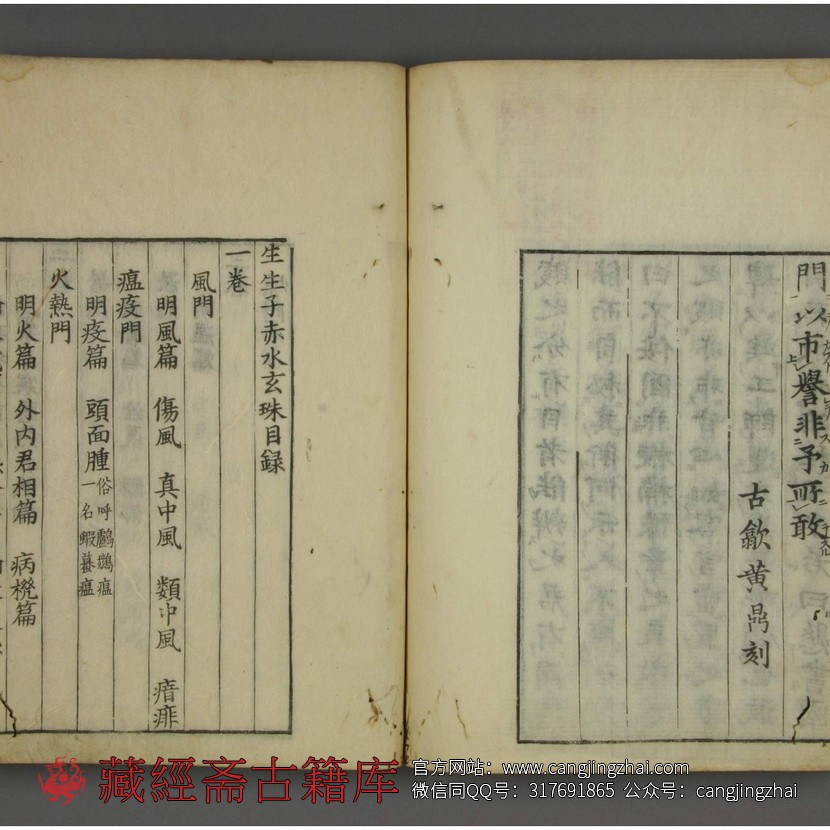 門以市譽非予所敢
古歙黄鼎刻
生生子赤水玄珠目録
一卷
風門
明風篇 傷風 真中風 類中風 瘖痱
瘟疫門
明疫篇 頭面腫 俗呼鸕鷀瘟
一名蝦蟇瘟
火熱門
明火篇 外内君相篇 病機篇
藏經斋古籍库
官方网站：www.cangjingzhai.com
微信同QQ号：317691865 公众号：cangjingzhai